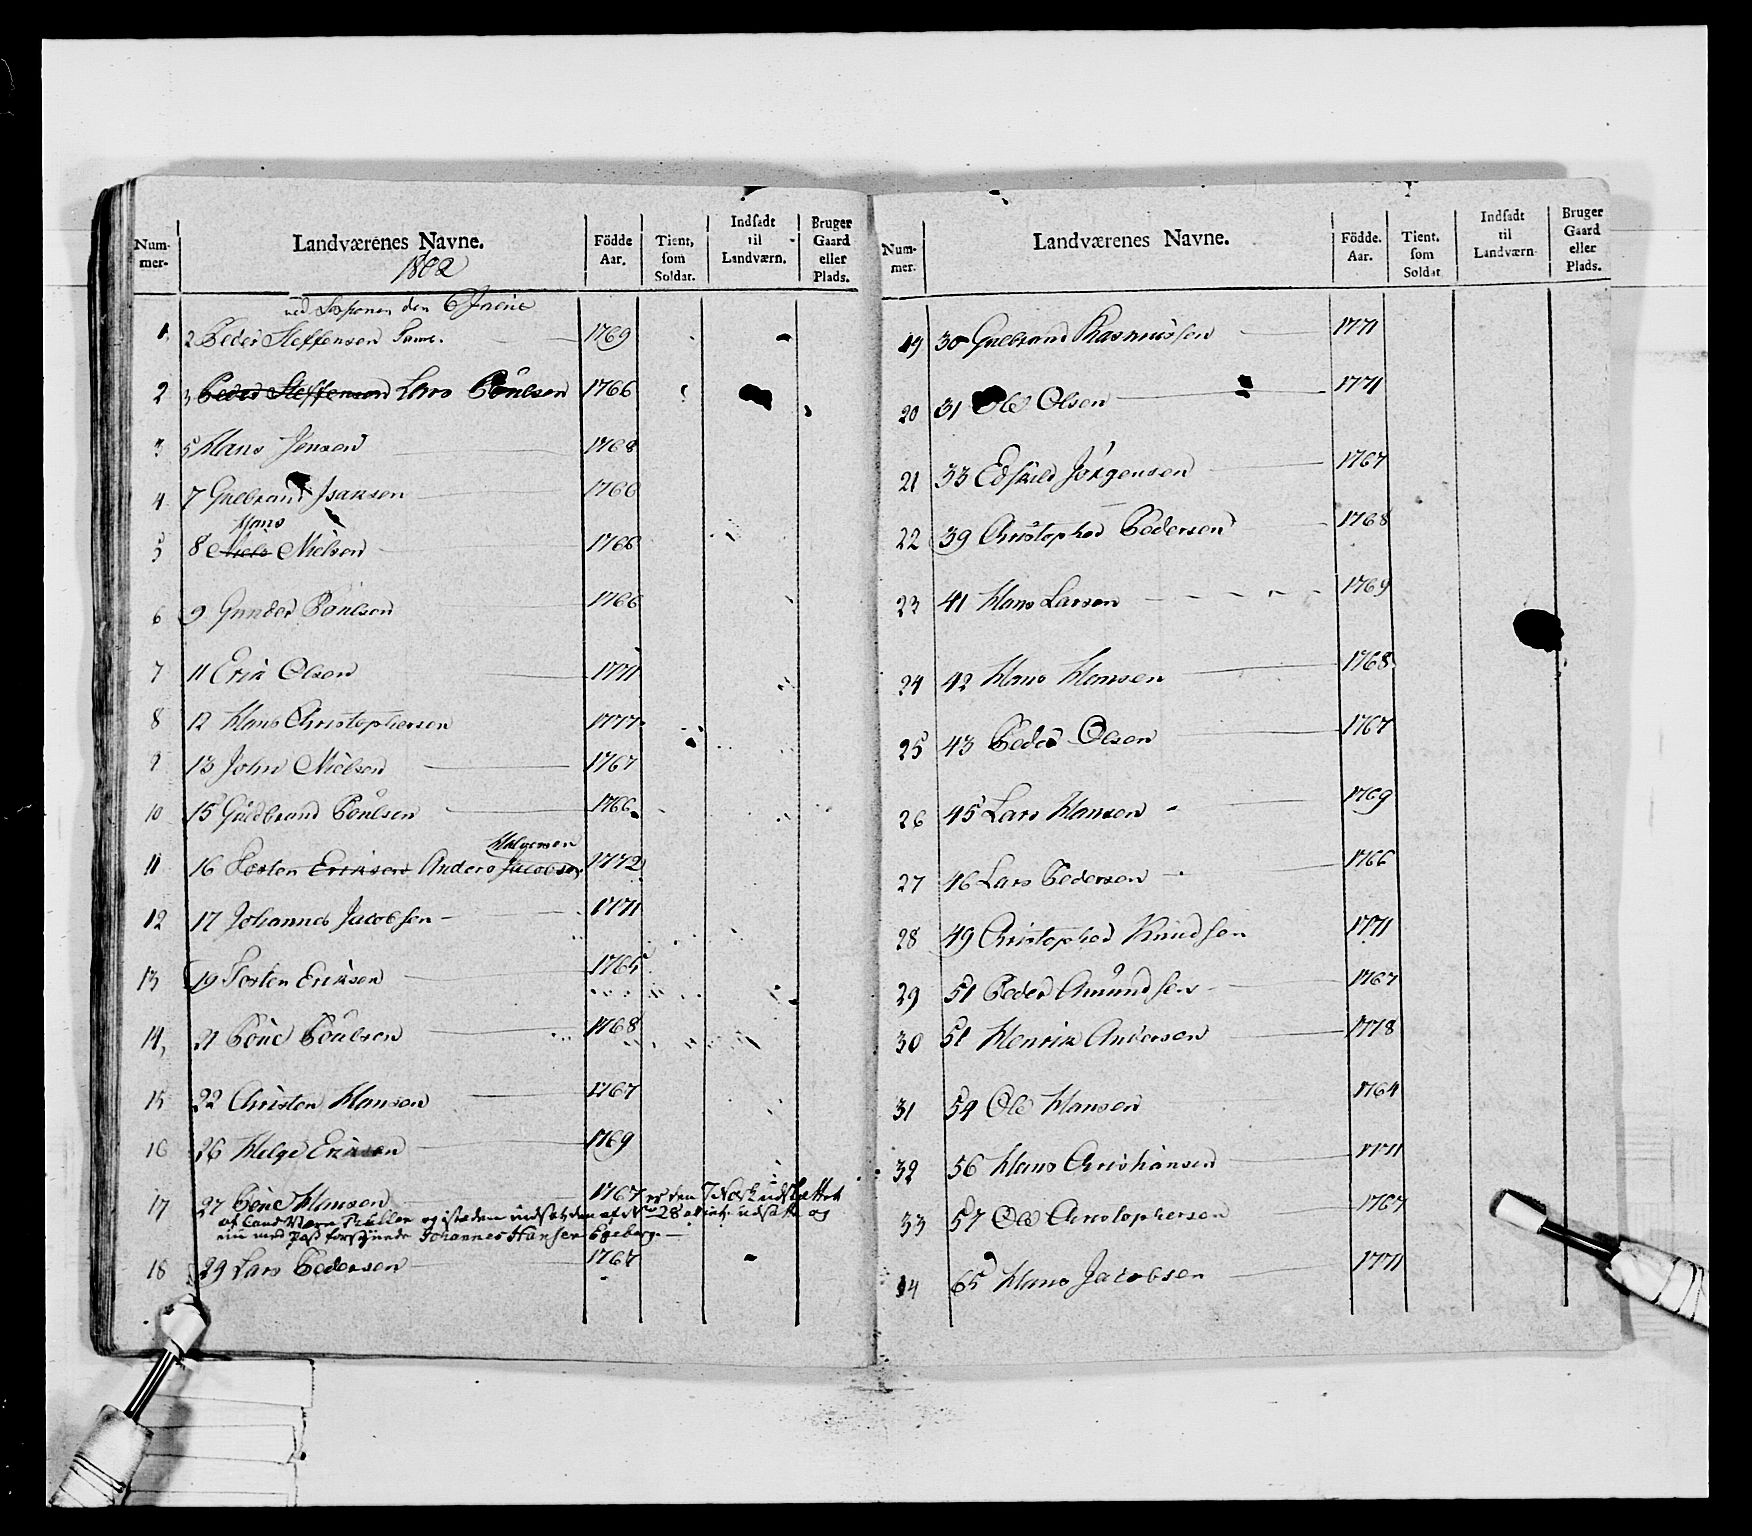 Num-
mer-
Landværenes Navne.
Födde
Aar.
Tient,
ſom
Soldat.
Indſadt
til
Landværn.
Bruger
Gaard
eller
Plads.
1802
den 6 Junii
1. 2 Peder Steffensen 1769
2 3 Peder Steffensen Lars Poulsen 1766
3 5 Hans Jensen 1768
4 7 Gulbrand Isaksen 1766
Hans
5 8 Niels Nielsen 1766
6 9 Gunder Poulsen 1766
7 11 Erik Olsen 1771
8 12 Hans Christophersen 1777
9 13 John Nielsen 1767
10 15 Guldbrand Poulsen 1766
Halvorsen
11 16 Tosten Eriksen Anders Jacobsen 1772
12 17 Johannes Jacobsen 1771
13 19 Tosten Eriksen 1765
14, 21 Poul Poulsen 1768
15 22 Christen Hansen 1767
16 26 Helge Eriksen 1769
17 27 Poul Hansen 1767 er den 7 udslettet
af Land Værn Rullen og isteden indsat den af No 28 udsatte og
nu med Pass forsynede Johannes Hansen Egeberg
18 29 Lars Pedersen 1767
Num-
mer.
Landværenes Navne.
Födde.
Aar.
Tient.
ſom
Soldat
Indſadt
til
Landværn
Bruger
Gaard
eller
Plads.
19 30 Gulbrand Rasmussen 1771
20 31 Ole Olsen 1771
21 33 Edskild Jörgensen 1767
22 39 Christopher Pedersen 1768
23 41 Hans Larsen 1769
24 42 Hans Hansen 1768
25 43 Peder Olsen 1767
26 45 Lars Hansen 1769
27 46 Lars Pedersen 1766
28 49 Christopher Knudsen 1771
29 51 Peder Amundsen 1767
30 51 Henrik Andersen 1778
31 54 Ole Hansen 1764
32 56 Hans Christiansen 1771
33 57 Ole Christophersen 1767
34 65 Hans Jacobsen 1771